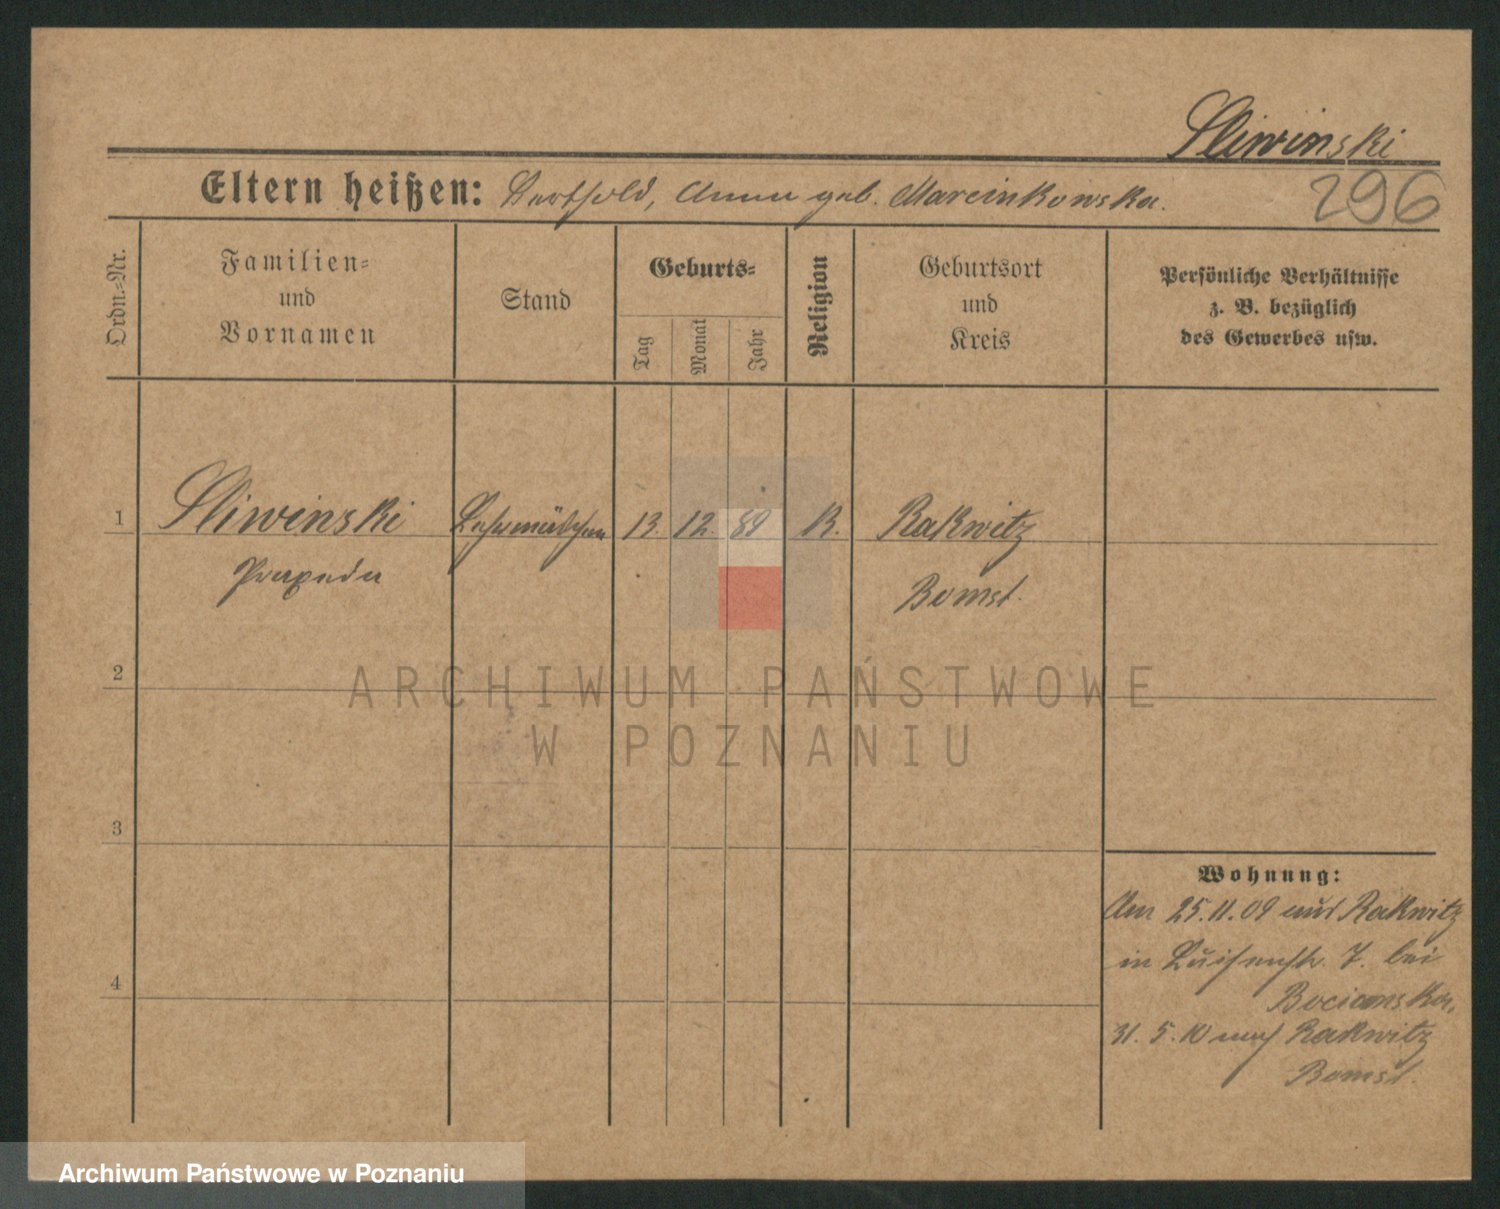 Sliwinski
296
Eltern heißen: Berthold, Anna geb. Marcinkowska.
Ordn.-Nr.
Familien-
und
Vornamen
Stand
Geburts-
Tag
Monat
Jahr
Religion
Geburtsort
und
Kreis
Persönliche Verhältnisse
z. B. bezüglich
des Gewerbes usw.
1 Sliwinski Lehrmädchen 13. 12. 89 K. Rakwitz
Praxeda Bomst.
2
3
4
Wohnung:
Am 25.11.09 aus Rakwitz
in Luisenstr. 7. bei
31. 5. 10 nach Rakwitz
Bomst.
ARCHIWUM PAŃSTWOWE
W POZNANIU
Archiwum Państwowe w Poznaniu